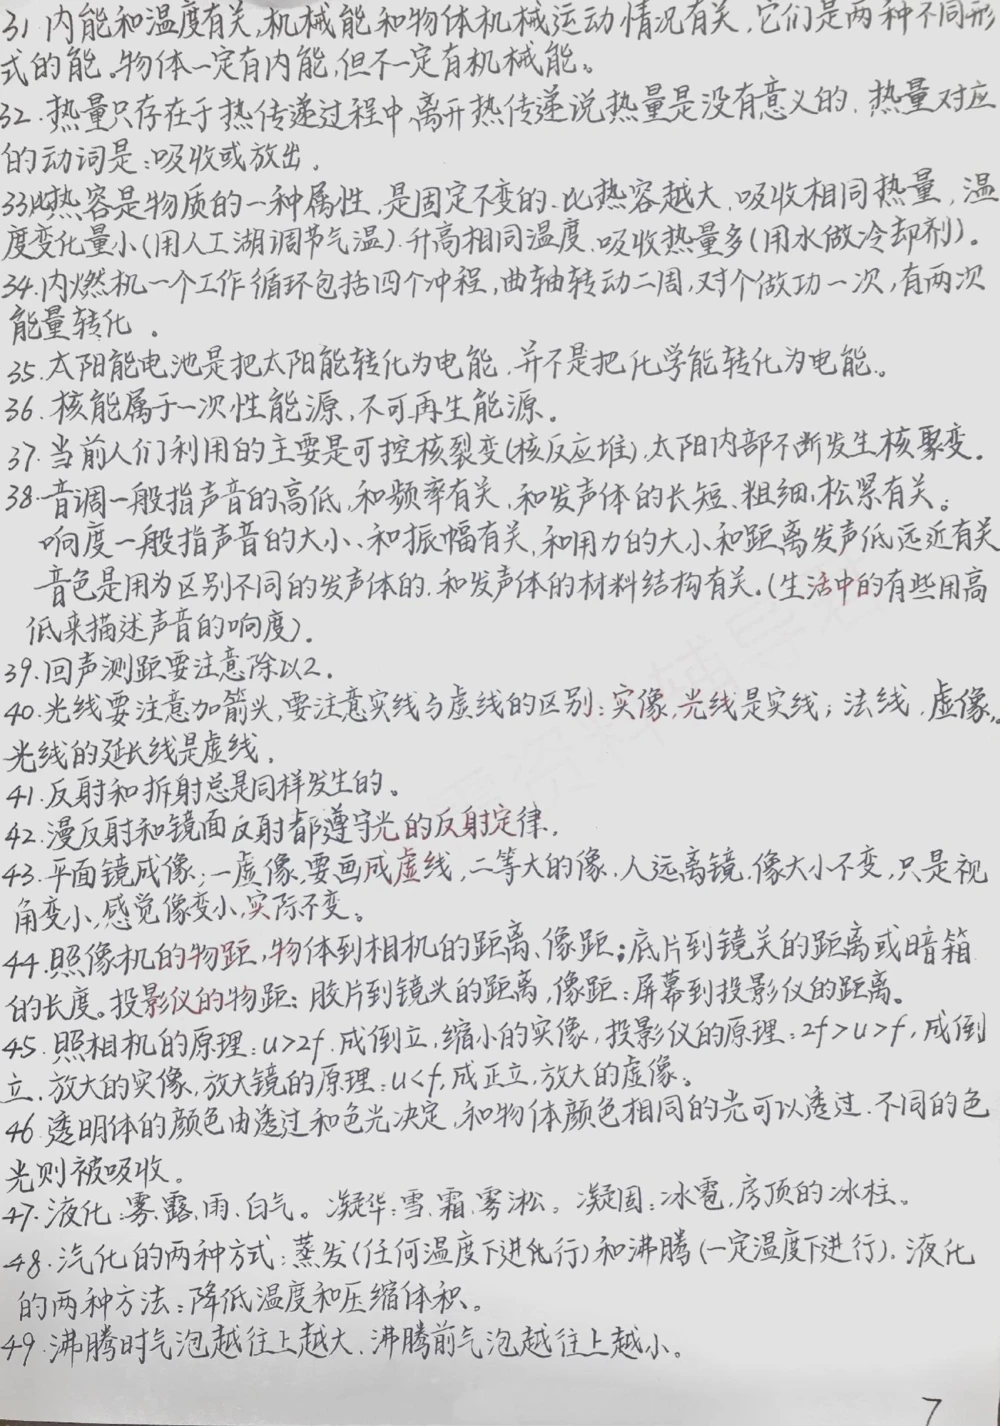 31.内能和温度有关,机械能和物体机械运动情况有关,它们是两种不同形
式的能。物体一定有内能,但不一定有机械能。
32.热量只存在于热传递过程中,离开热传递说热量是没有意义的.热量对应
的动词是:吸收或放出.
33.比热容是物质的一种属性,是固定不变的.比热容越大,吸收相同热量,温
度变化量小(用人工湖调节气温).升高相同温度,吸收热量多(用水做冷却剂)。
34.内燃机一个工作循环包括四个冲程,曲轴转动二周,对个做功一次,有两次
能量转化。
35.太阳能电池是把太阳能转化为电能,并不是把化学能转化为电能。
36.核能属于一次性能源,不可再生能源。
37.当前人们利用的主要是可控核裂变(核反应堆),太阳内部不断发生核聚变.
38.音调一般指声音的高低,和频率有关,和发声体的长短、粗细、松紧有关。
响度一般指声音的大小、和振幅有关,和用力的大小和距离发声低远近有关
音色是用为区别不同的发声体的.和发声体的材料结构有关.(生活中的有些用高
低来描述声音的响度).
39.回声测距要注意除以2.
40.光线要注意加箭头,要注意实线与虚线的区别:实像,光线是实线;法线.虚像,
光线的延长线是虚线.
41.反射和拆射总是同样发生的。
42.漫反射和镜面反射都遵守光的反射定律.
43.平面镜成像:一虚像,要画成虚线,二等大的像.人远离镜,像大小不变,只是视
角变小,感觉像变小,实际不变。
44.照像机的物距,物体到相机的距离、像距;底片到镜关的距离或暗箱
的长度。投影仪的物距:胶片到镜头的距离,像距:屏幕到投影仪的距离。
45.照相机的原理:u>2f.成倒立,缩小的实像,投影仪的原理:2f>u>f,成倒
立.放大的实像,放大镜的原理:u<f,成正立.放大的虚像。
46.透明体的颜色由透过和色光决定,和物体颜色相同的光可以透过.不同的色
光则被吸收。
47.液化:雾、露、雨、白气。凝华:雪、霜、雾淞。凝固:冰雹,房顶的冰柱。
48.汽化的两种方式:蒸发(任何温度下进行)和沸腾(一定温度下进行).液化
的两种方法:降低温度和压缩体积。
49.沸腾时气泡越往上越大.沸腾前气泡越往上越小。
7